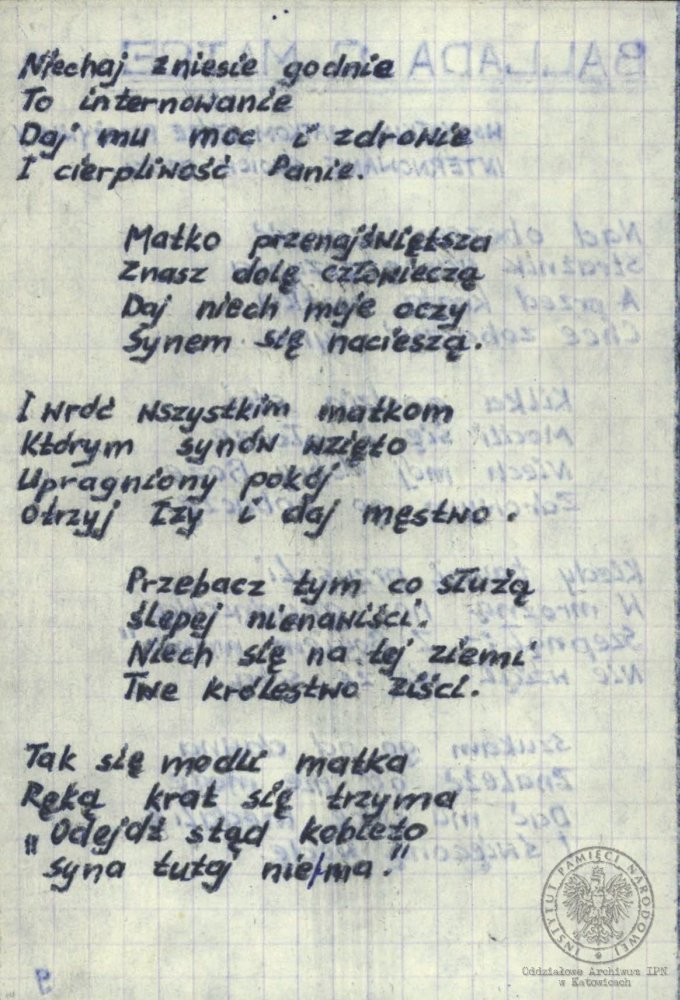 Niechaj zniesie godnie
To internowanie
Daj mu moc i zdrowie
I cierpliwość Panie.
Matko przenajświętsza
Znasz dolę człowieczą
Daj niech moje oczy
Synem się nacieszą.
I wróć wszystkim matkom
Którym synów wzięto
Upragniony pokój
Otrzyj łzy i daj męstwo.
Przebacz tym co służą
ślepej nienawiści.
Niech się na tej ziemi
Twe królestwo ziści.
Tak się modli matka
Ręką krat się trzyma
„Odejdź stąd kobieto
syna tutaj nie/ma."
INSTYTUT PAMIĘCI NARODOWEJ
Oddziałowe Archiwum IPN
w Katowicach